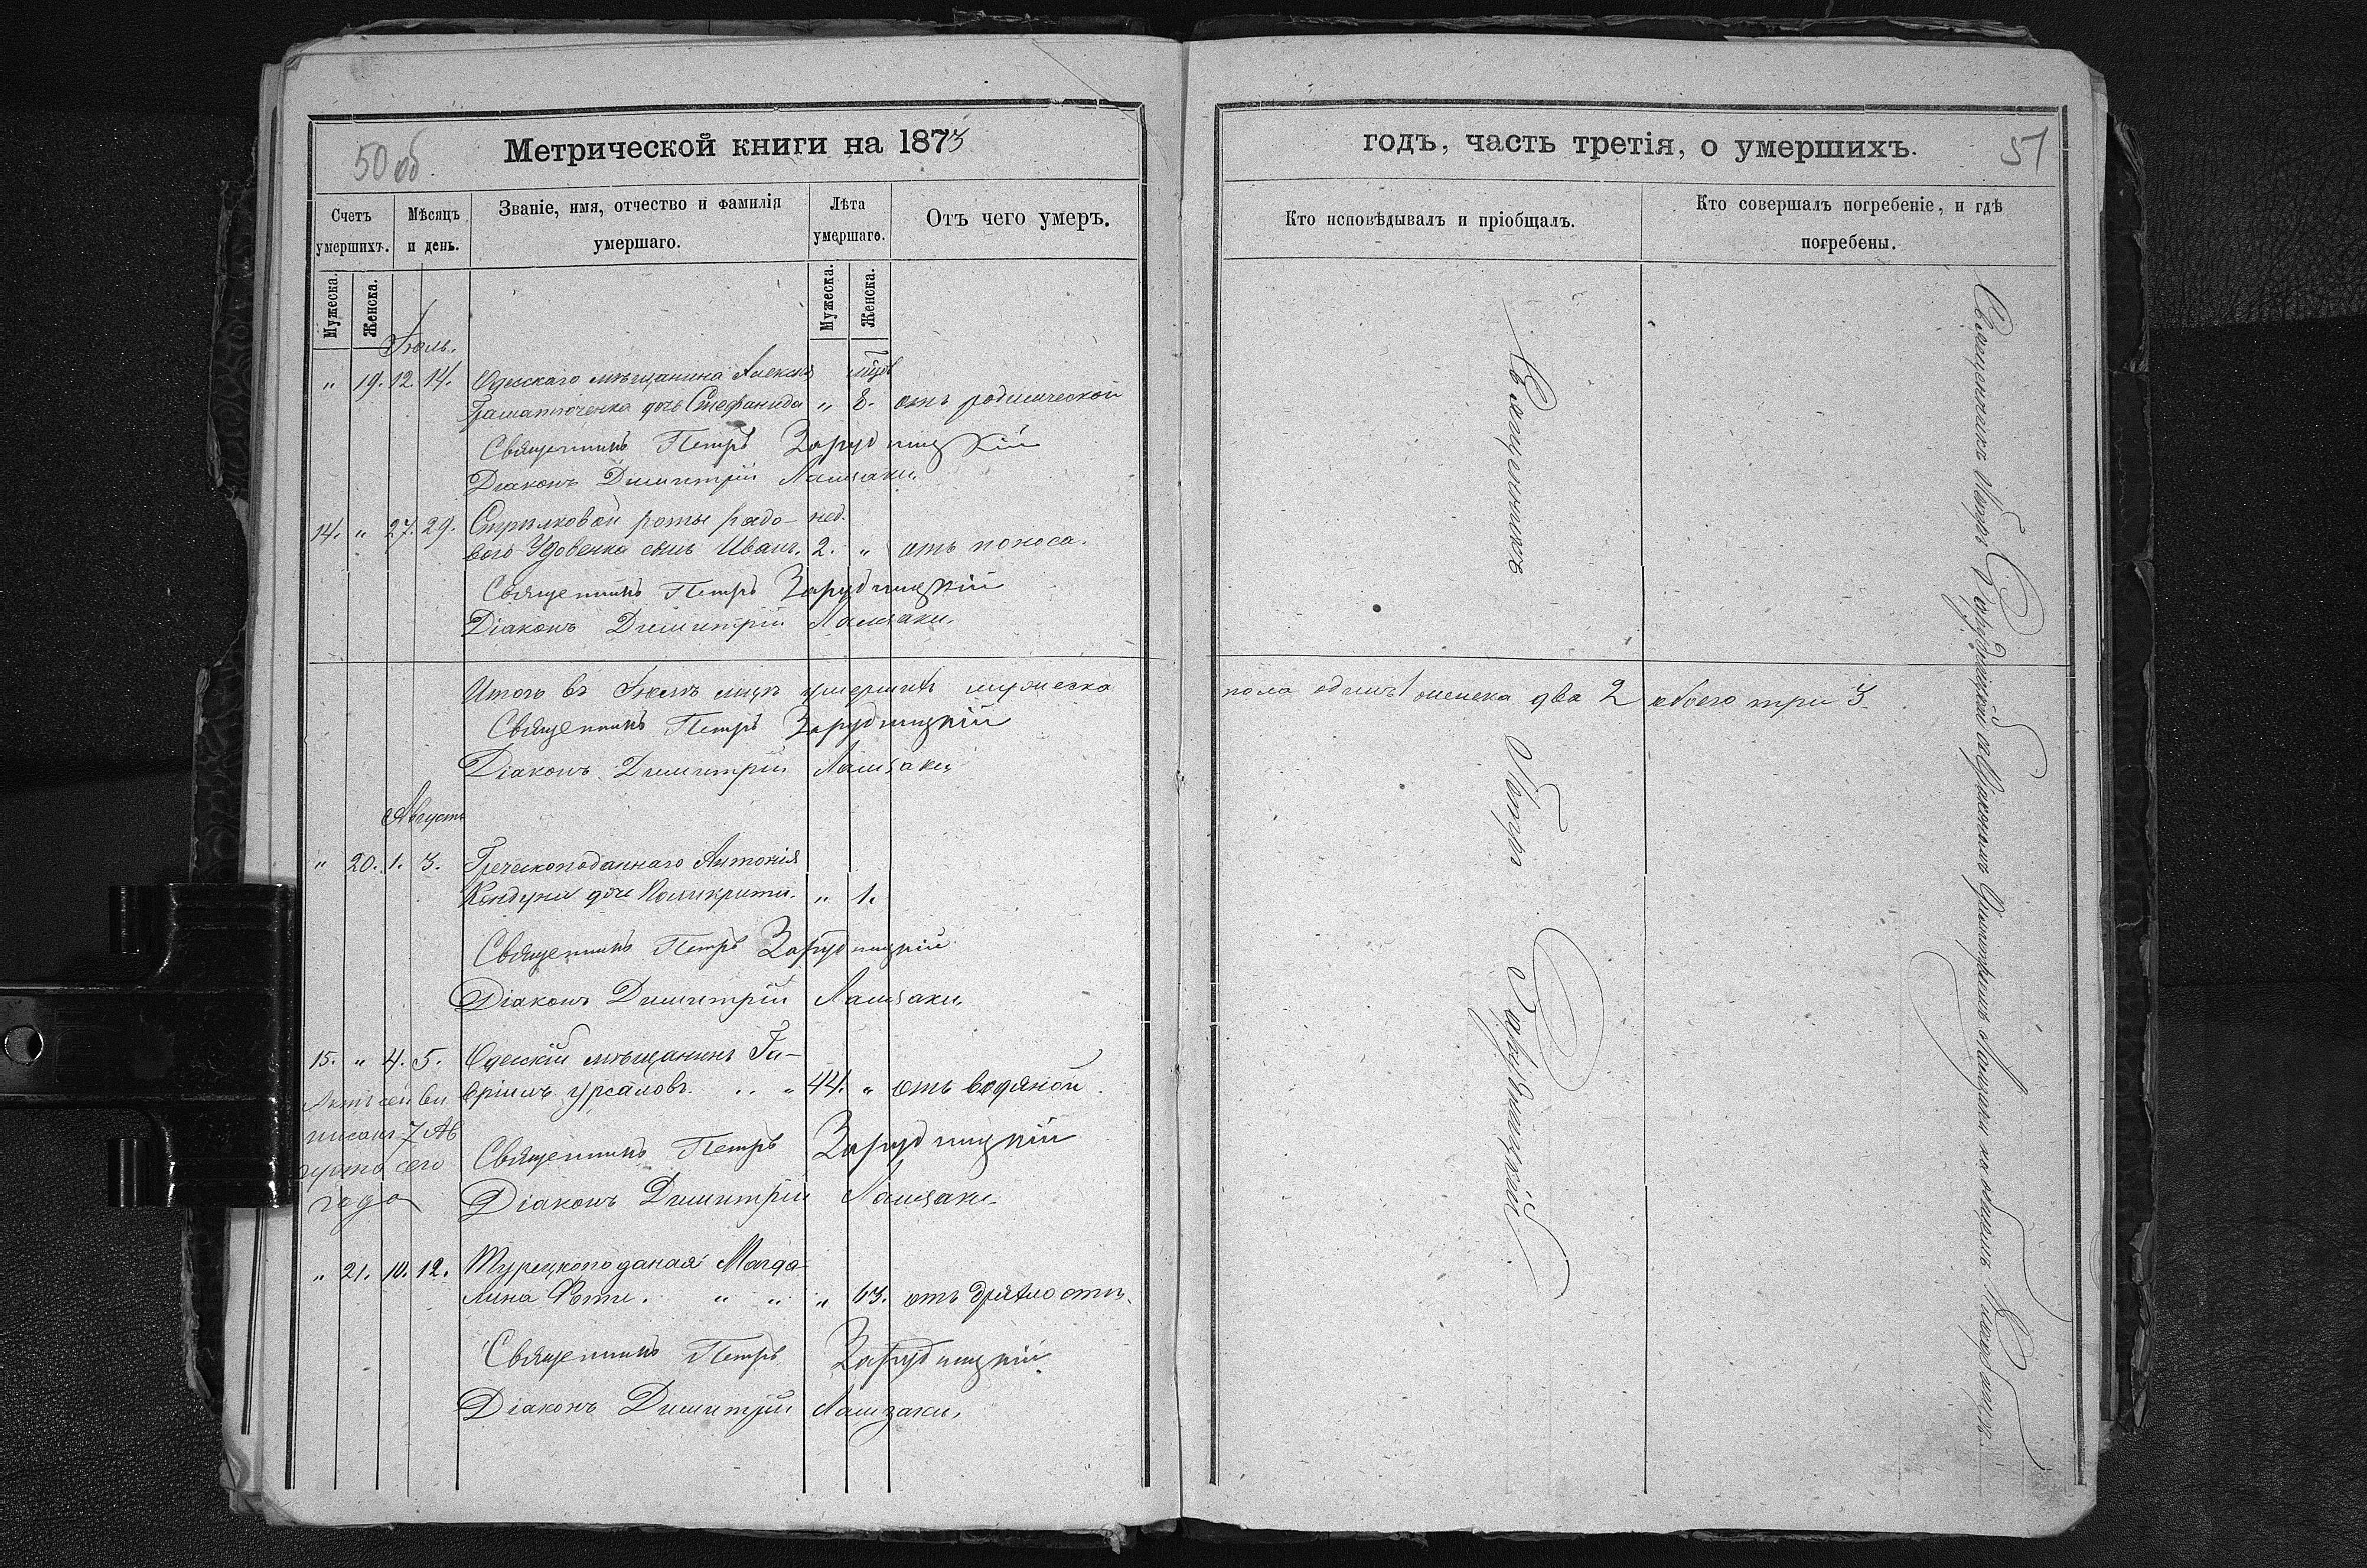 50 об
Метрической книги на 1873
Счетъ умершихъ.
Мѣсяцъ и день.
Званіе, имя, отчество и фамилія умершаго.
Лѣта умершаго.
Отъ чего умеръ.
Мужеска.
Женска.
Мужеска.
Женска.
Іюль.
" 19. 12. 14. Одесскаго мѣщанина Алексія
дочь Стефанида " 8. отъ родимческой
Священникъ Петръ Зарудницкій
Діаконъ Димитрій
14. " 27. 29. Стрѣлковой роты рядо- нед.
вого Удовенка сынъ Иванъ. 2. " отъ поноса.
Священникъ Петръ Зарудницкій
Діаконъ Димитрій
Итого въ Іюлѣ мцѣ умершихъ мужеска
Священникъ Петръ Зарудницкій
Діаконъ Димитрій
Августъ
" 20. 1. 3. Греческоподаннаго Антонія
дочь " 1.
Священникъ Петръ Зарудницкій
Діаконъ Димитрій
15. " 4. 5. Одесскій мѣщанинъ Га-
вріилъ Урсаловъ. " " 44. " отъ водяной
Актъ сей ви
писанъ 7 Ав
густа сего
года
Священникъ Петръ Зарудницкій
Діаконъ Димитрій
" 21. 10. 12. Турецкоподаная Магда
лина Фоти. " " " 63. отъ дряхлости.
Священникъ Петръ Зарудницкій
Діаконъ Димитрій
годъ, часть третія, о умершихъ.
51
Кто исповѣдывалъ и пріобщалъ.
Кто совершалъ погребеніе, и гдѣ погребены.
пола одинъ 1 женска два 2 обоего три 3.
Священникъ Петръ Зарудницкій
Священникъ Петръ Зарудницкій съ Діакономъ Димитріемъ на общемъ кладбищѣ.